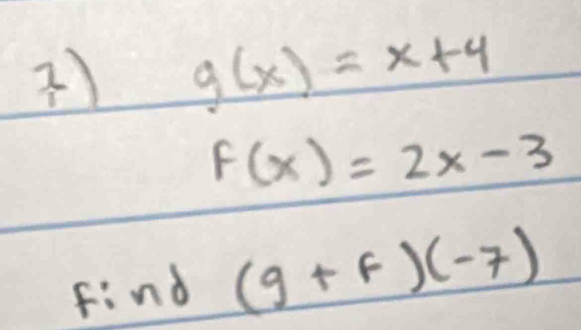 7) g(x) = x+4
F(x) = 2x - 3
Find (g + F)(-7)